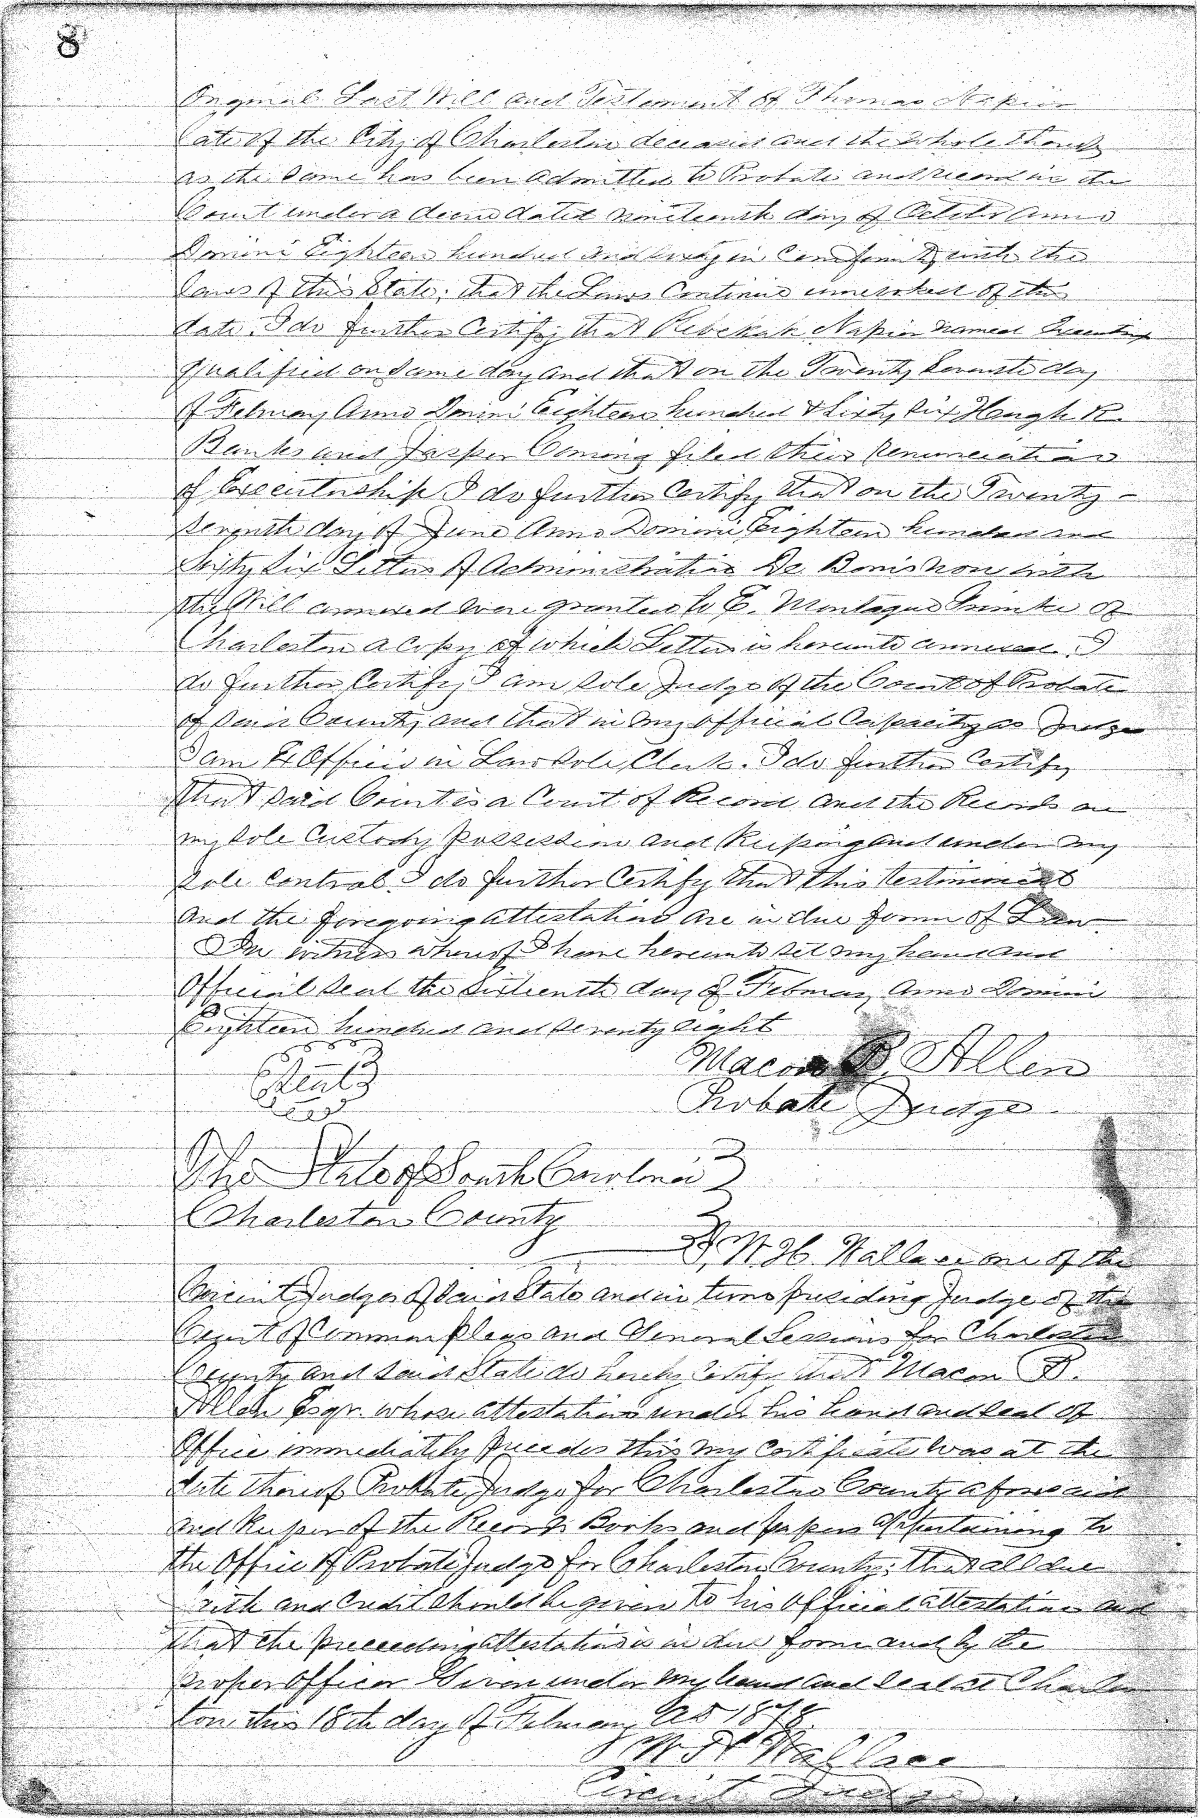 8
Original Last Will and Testament of Thomas Napier
late of the City of Charleston deceased and the whole thereof
as the same has been admitted to Probate and record in the
Court under a decree dated nineteenth day of October Anno
Domini Eighteen hundred and sixty in conformity with the
laws of this State; that the Laws continue unrevoked of this
date. I do further Certify that Rebekah Napier named Executrix
qualified on same day and that on the Twenty Seventh day
of February Anno Domini Eighteen hundred & Sixty Six Heugh R.
Banks and Jasper Coming filed their renunciation
of Executorship I do further Certify that on the Twenty-
Seventh day of June Anno Domini Eighteen hundred and
Sixty Six Letters of Administration De Bonis non with
the Will annexed were granted to E. Montague Grimke of
Charleston a copy of which Letters is hereunto annexed. I
do further Certify I am sole Judge of the Court of Probate
of said County and that in my official Capacity as Judge
I am Ex Officio in Law sole Clerk. I do further Certify
that said Court is a Court of Record and the Records are
my sole Custody possession and keeping and under my
sole control. I do further Certify that this testimonial
and the foregoing attestation are in due form of Law.
In witness whereof I have hereunto set my hand and
Official seal the Sixteenth day of February Anno Domini
Eighteen hundred and seventy eight
Seal Macon B. Allen
Probate Judge.
The State of South Carolina
Charleston County
I, W. H. Wallace one of the
Circuit Judges of said State and in turn presiding Judge of the
Court of Common pleas and General Sessions for Charleston
County and said State do hereby Certify that Macon B.
Allen Esqr. whose attestation under his hand and seal of
Office immediately precedes this my certificate was at the
date thereof Probate Judge for Charleston County aforesaid
and keeper of the Records Books and papers appertaining to
the Office of Probate Judge for Charleston County; that all due
faith and Credit should be given to his official attestation and
that the preceeding attestation is in due form and by the
proper officer Given under my hand and seal at Charles
ton this 18th day of February AD 1878.
W. H. Wallace
Circuit Judge.